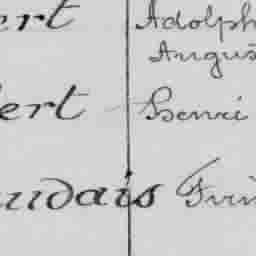 ert Adolph
Augus
lert Henri
udais Firm